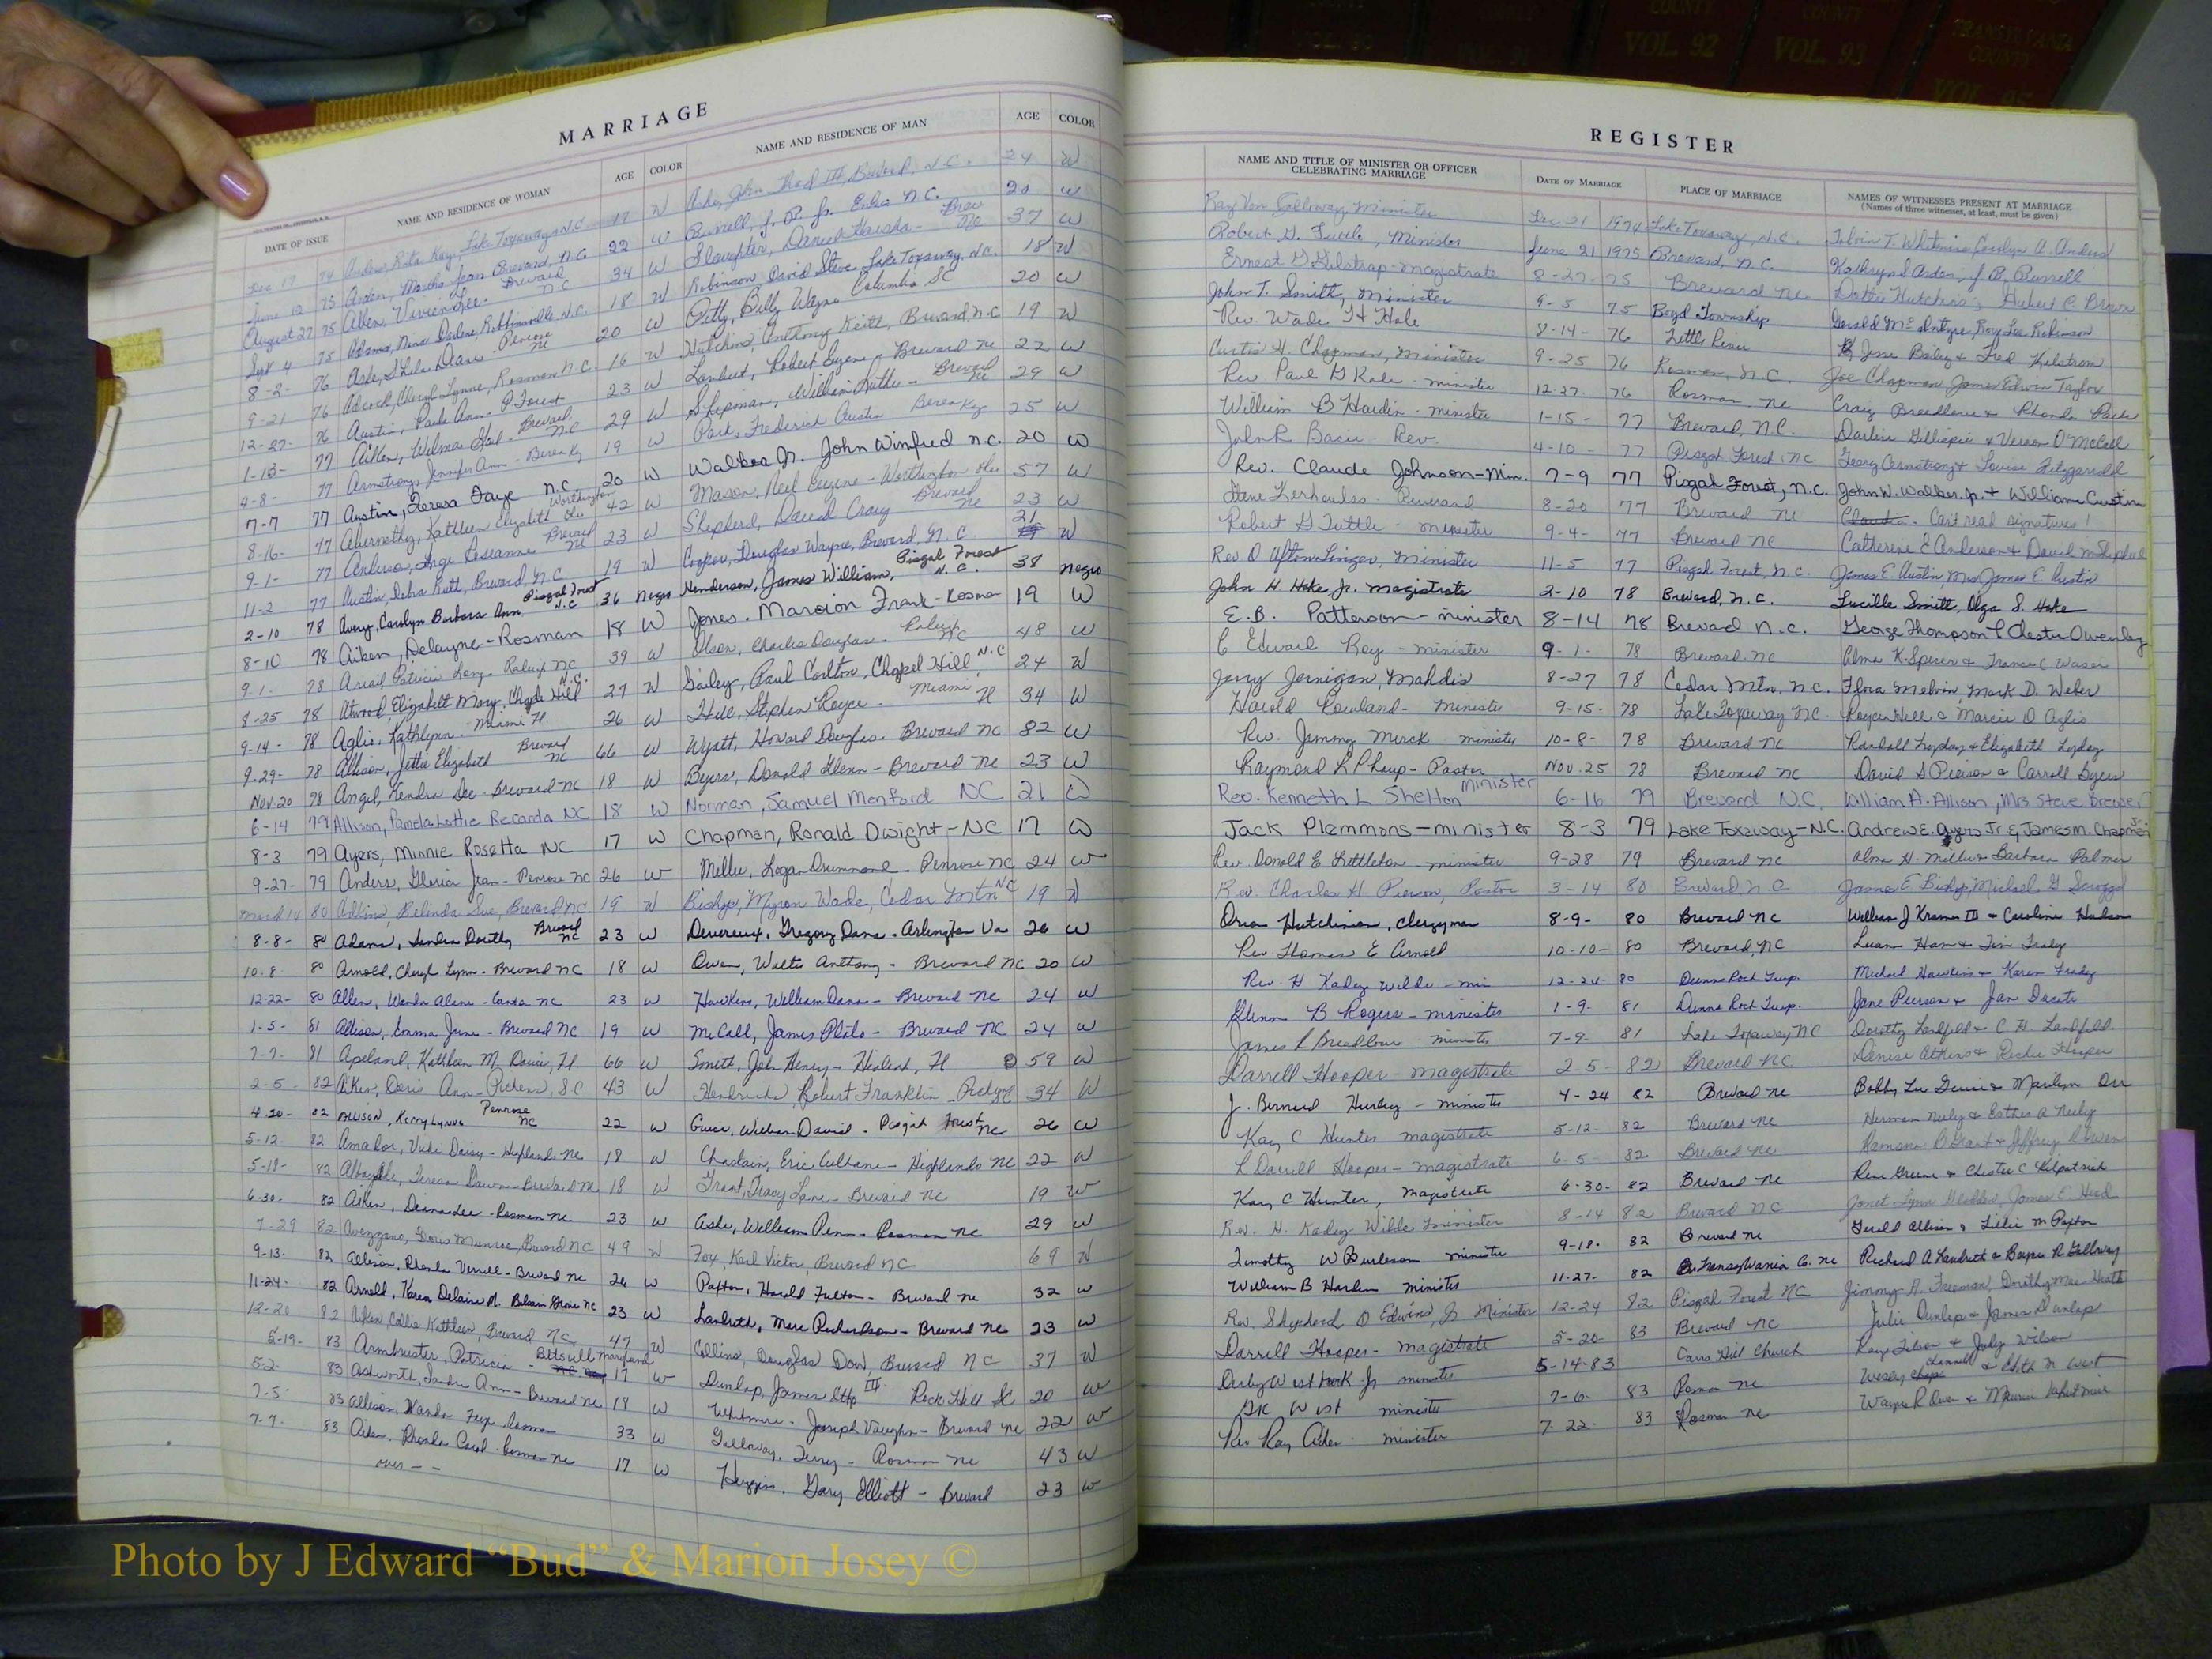 COUNTY
VOL. 92
COUNTY
VOL. 93
TRANSYLVANIA
COUNTY
VOL. 95
MARRIAGE
DATE OF ISSUE
NAME AND RESIDENCE OF WOMAN
AGE
COLOR
NAME AND RESIDENCE OF MAN
AGE
COLOR
Dec 17 74 Rita Kay, Lake Toxaway N.C. 17 W John III, Brevard, N.C. 24 W
June 12 75 Arden, Martha Jean Brevard, N.C. 22 W Burrell, J. P. Jr. N.C. 20 W
August 27 75 Allen, Vivien Lee - Brevard N.C. 34 W Slaughter, Daniel - Brev NC 37 W
Sept 4 75 Adams, Nina Darlene, Robbinsville N.C. 18 W Robinson David Steve, Lake Toxaway, N.C. 18 W
8-2- 76 Ashe, Shela Diane - Penrose NC 20 W Petty, Billy Wayne Columbia SC 20 W
9-21 76 Adcock, Cheryl Lynne, Rosman N.C. 16 W Hutchins, Anthony Keith, Brevard, N.C 19 W
12-27- 76 Austin, Paula Ann - P. Forest 23 W Lambert, Robert Eugene - Brevard NC 22 W
1-13- 77 Aiken, Wilma Gail - Brevard, N.C 29 W Shipman, William Luther - Brevard NC 29 W
4-8- 77 Armstrong, Jennifer Ann - Berea Ky 19 W Park, Frederick Austin Berea Ky 25 W
7-7 77 Austin, Teresa Faye N.C. 20 W Walker Jr. John Winfred N.C. 20 W
8-16- 77 Abernethy, Kathleen Elizabeth Worthington Ohio 42 W Mason, Neil Eugene - Worthington Ohio 57 W
9-1- 77 Anderson, Inge Roseanne Brevard NC 23 W Shepherd, David Craig Brevard NC 23 W
11-2 77 Austin, Debra Ruth, Brevard, N.C 19 W Cooper, Douglas Wayne, Brevard, N.C. 21 W
2-10 78 Avery, Carolyn Barbara Ann, Pisgah Forest N.C 36 Negro Henderson, James William, Pisgah Forest N.C. 38 Negro
8-10 78 Aiken, Delayne - Rosman 18 W Jones. Marcion Frank - Rosman 19 W
9-1- 78 Patricia Long - Raleigh NC 39 W Olson, Charles Douglas - Raleigh NC 48 W
8-25 78 Atwood, Elizabeth Mary, Chapel Hill N.C. 27 W Sailey, Paul Carlton, Chapel Hill N.C 24 W
9-14- 78 Aglio, Kathlynn - Miami Fl. 26 W Hill, Stephen Royce - Miami Fl 34 W
9-29- 78 Allison, Jettie Elizabeth Brevard NC 66 W Wyatt, Howard Douglas - Brevard NC 82 W
Nov. 20 78 Angel, Kendra Dee - Brevard NC 18 W Byers, Donald Glenn - Brevard NC 23 W
6-14 79 Allison, Pamela Lottie Recarda NC 18 W Norman, Samuel Monford NC 21 W
8-3 79 Ayers, Minnie Rosetta NC 17 W Chapman, Ronald Dwight - NC 17 W
9-27- 79 Anders, Gloria Jean - Penrose NC 26 W Miller, Logan Drummond - Penrose NC 24 W
March 14 80 Adkins, Belinda Sue, Brevard NC. 19 W Bishop, Myron Wade, Cedar Mtn NC 19 W
8-8- 80 Adams, Sandra Dorothy Brevard NC 23 W Devereux, Gregory Dana - Arlington Va 26 W
10-8 80 Arnold, Cheryl Lynn - Brevard NC 18 W Owen, Walter Anthony - Brevard NC 20 W
12-22- 80 Allen, Wanda Alene - Canton NC 23 W Hawkins, William Dana - Brevard NC 24 W
1-5- 81 Allison, Emma June - Brevard NC 19 W McCall, James Plato - Brevard NC 24 W
7-7- 81 Apeland, Kathleen M. Davie, Fl 66 W Smith, John Henry - Hialeah, Fl 59 W
2-5- 82 Aiken, Doris Ann - Pickens, S.C 43 W Hendricks, Robert Franklin - Pickens 34 W
4-20- 82 Allison, Kerry Lynne Penrose NC 22 W Guice, William David - Pisgah Forest NC 26 W
5-12- 82 Amador, Vicki Daisy - Highlands NC 18 W Chastain, Eric Culhane - Highlands NC 22 W
5-18- 82 Teresa Dawn - Brevard NC 18 W Grant, Tracy Lane - Brevard NC 19 W
6-30- 82 Aiken, Diana Lee - Rosman NC 23 W Ashe, William Penn - Rosman NC 29 W
7-29 82 Avezzano, Doris Monroe, Brevard NC 49 W Fox, Karl Victor, Brevard NC 69 W
9-13- 82 Allison, Rhonda Verrell - Brevard NC 26 W Paxton, Harold Fulton - Brevard NC 32 W
11-24- 82 Arnold, Karen Delaine M. Balsam Grove NC 23 W Landreth, Marc Richardson - Brevard NC 23 W
12-20 82 Aiken, Callie Kathleen, Brevard NC 47 W Collins, Douglas Dow, Brevard NC 37 W
5-19- 83 Armbruster, Patricia - Maryland 17 W Dunlap, James III Rock Hill SC 20 W
5-2- 83 Ashworth, Sandra Ann - Brevard NC 18 W Whitmire - Joseph Vaughn - Brevard NC 22 W
7-5- 83 Allison, Wanda Faye - Rosman 33 W Galloway, Terry - Rosman NC 43 W
7-7- 83 Aiken, Rhonda Carol - Rosman NC 17 W Huggins, Gary Elliott - Brevard 23 W
over - -
REGISTER
NAME AND TITLE OF MINISTER OR OFFICER
CELEBRATING MARRIAGE
DATE OF MARRIAGE
PLACE OF MARRIAGE
NAMES OF WITNESSES PRESENT AT MARRIAGE
(Names of three witnesses, at least, must be given)
Ray Von Galloway Minister Dec 21 1974 Lake Toxaway, N.C. T. Whitmire, Carolyn A. Anders
Robert G. Tuttle, Minister June 21 1975 Brevard, N.C. Kathryn S Arden, J. P. Burrell
Ernest G Gilstrap - Magistrate 8-27-75 Brevard NC Hutchins Hubert C Brown
John T. Smith, Minister 9-5 75 Boyd Township Gerald McIntyre, Roy Lee Robinson
Rev. Wade H Hale 8-14- 76 Little River Jesse Bailey & Fred
Curtis H. Chapman, Minister 9-25 76 Rosman, N.C. Joe Chapman, James Edwin Taylor
Rev Paul G Kale - minister 12-27- 76 Rosman NC Craig Breedlove & Rhonda
William B Hardin - minister 1-15- 77 Brevard, N.C. Darlene Gillespie & Vernon O McCall
John R Bacie Rev. 4-10 - 77 Pisgah Forest, NC George Armstrong & Louise Fitzgerald
Rev. Claude Johnson - Min. 7-9 77 Pisgah Forest, N.C. John W. Walker, Jr. & William Austin
Gene Zerhoulas - Reverend 8-20 77 Brevard NC Can't read signatures!
Robert G Tuttle - minister 9-4- 77 Brevard NC Catherine E Anderson & David M Shepherd
Rev O. Afton Linger, Minister 11-5 77 Pisgah Forest, N.C. James E. Austin Mrs James E. Austin
John H Hake Jr. Magistrate 2-10 78 Brevard, N.C. Lucille Smith, Olga S. Hake
E.B. Patterson - minister 8-14 78 Brevard N.C. George Thompson & Chester Owenby
C Edward Roy - minister 9-1- 78 Brevard NC Alma K. Spicer & Frances C Waser
Jerry Jernigan, Mahdis 8-27 78 Cedar Mtn, N.C. Flora Melvin Mark D. Weber
Harold Rowland - minister 9-15- 78 Lake Toxaway NC Royce Hill & Marcie O Aglio
Rev. Jimmy Merck minister 10-8- 78 Brevard NC Randall Lyday & Elizabeth Lyday
Raymond L Phaup - Pastor Nov. 25 78 Brevard NC David S Pierson & Carroll Byers
Rev. Kenneth L Shelton Minister 6-16 79 Brevard N.C. William A. Allison, Mrs Steve Brewer
Jack Plemmons - minister 8-3 79 Lake Toxaway - N.C. Andrew E. Ayers Jr. & James M. Chapman Jr.
Rev. Donald E Littleton - minister 9-28 79 Brevard NC Alma H. Miller & Barbara Palmer
Rev. Charles H Pierson, Pastor 3-14 80 Brevard N.C James E Bishop, Michael G Scroggs
Orion Hutchinson, Clergyman 8-9- 80 Brevard NC William J Kramer III - Caroline Hudson
Rev Thomas E Arnold 10-10- 80 Brevard, NC Luann Ham & Tim Fraley
Rev. H Kadey Wilde - min 12-24- 80 Dunns Rock Twp. Michael Hawkins & Karen
Glenn B Rogers - minister 1-9- 81 Dunns Rock Twp. Jane Pierson & Jan
James L Breedlove minister 7-9- 81 Lake Toxaway NC Dorothy Landfield & C H. Landfield
Darrell Hooper - magistrate 2-5- 82 Brevard NC Denise Atkins & Hooper
J. Bernard Hurley - minister 4-24 82 Brevard NC Bobby Lee & Marilyn Orr
Kay C Hunter magistrate 5-12- 82 Brevard NC Herman Neely & Esther A Neely
R Darrell Hooper - magistrate 6-5- 82 Brevard NC Ramona B Grant & Jeffrey Owen
Kay C Hunter, magistrate 6-30- 82 Brevard NC Rena Greene & Chester C Kilpatrick
Rev. H. Kadey Wilde minister 8-14 82 Brevard NC Janet Lynn James E. Head
Timothy W Burleson minister 9-18- 82 Brevard NC Gerald Allison & Lillie M Paxton
William B Hardin minister 11-27- 82 Transylvania Co. NC Richard A Landreth & R Galloway
Rev. Shepherd O Edwins Jr Minister 12-24 82 Pisgah Forest NC Jimmy A. Freeman, Dorothy Mae Heath
Darrell Hooper - magistrate 5-20- 83 Brevard NC Julie Dunlap & James Dunlap
Derby Westbrook Jr minister 5-14-83 Carrs Hill Church Wilson & Judy Wilson
GK West minister 7-6- 83 Rosman NC Wesley & Edith M West
Rev Ray Aiken minister 7-22- 83 Rosman NC Wayne R Owen & Whitmire
Photo by J Edward “Bud” & Marion Josey ©